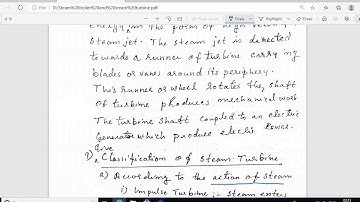 D:/Steam%20boiler%20and%20steam%20turbine.pdf
Energy in the form of high
Steam jet. The steam jet is directed
towards a runner of turbine carrying
blades or vanes around its periphery.
This runner or wheel rotates the shaft
of turbine produces mechanical work
The turbine shaft coupled to an electric
Generator which produce electric Power.
Give
9) Classification of Steam Turbine.
a) According to the action of steam
i) Impulse Turbine :- Steam enters